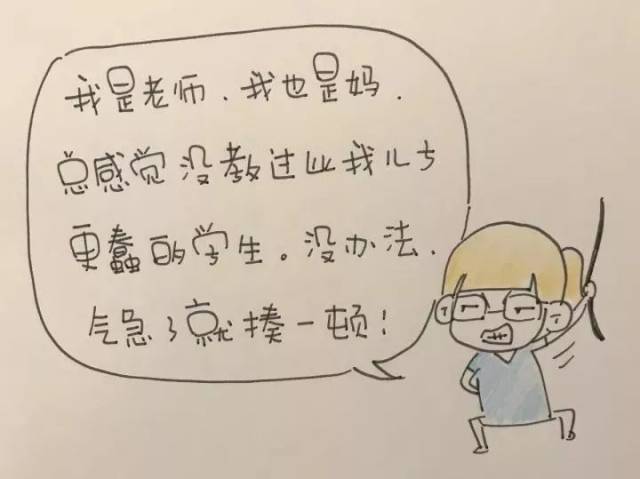 我是老师、我也是妈、
总感觉没教过比我儿子
更蠢的学生。没办法、
气急了就揍一顿！